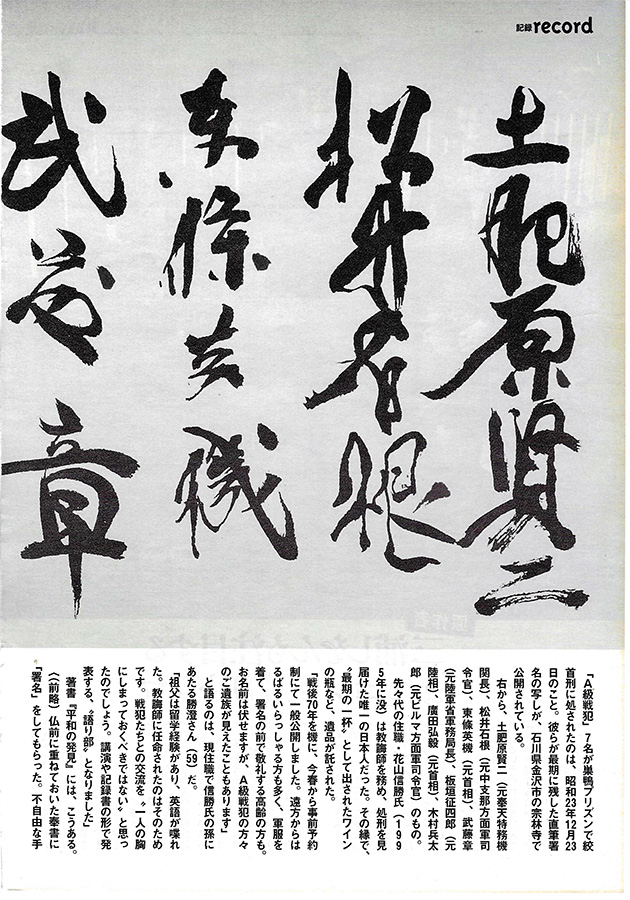 記録record
土肥原賢二
松井石根
東條英機
武藤章
「Ａ級戦犯」７名が巣鴨プリズンで絞
首刑に処されたのは、昭和23年12月23
日のこと。彼らが最期に残した直筆署
名の写しが、石川県金沢市の宗林寺で
公開されている。
右から、土肥原賢二（元奉天特務機
関長）、松井石根（元中支那方面軍司
令官）、東條英機（元首相）、武藤章
（元陸軍省軍務局長）、板垣征四郎（元
陸相）、廣田弘毅（元首相）、木村兵太
郎（元ビルマ方面軍司令官）のもの。
先々代の住職・花山信勝氏（１９９
５年に没）は教誨師を務め、処刑を見
届けた唯一の日本人だった。その縁で、
〝最期の一杯〟として出されたワイン
の瓶など、遺品が託された。
「戦後70年を機に、今春から事前予約
制にて一般公開しました。遠方からは
るばるいらっしゃる方も多く、軍服を
着て、署名の前で敬礼する高齢の方も。
お名前は伏せますが、Ａ級戦犯の方々
のご遺族が見えたこともあります」
と語るのは、現住職で信勝氏の孫に
あたる勝澄さん（59）だ。
「祖父は留学経験があり、英語が喋れ
た。教誨師に任命されたのはそのため
です。戦犯たちとの交流を〝一人の胸
にしまっておくべきではない〟と思っ
たのでしょう。講演や記録書の形で発
表する、〝語り部〟となりました」
著書『平和の発見』には、こうある。
〈（前略）仏前に重ねておいた奉書に
「署名」をしてもらった。不自由な手